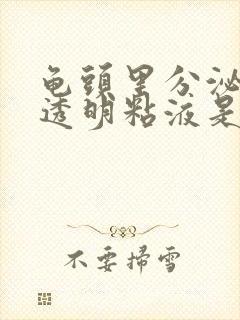 龟頭里分泌
透明黏液是
不要掃雪